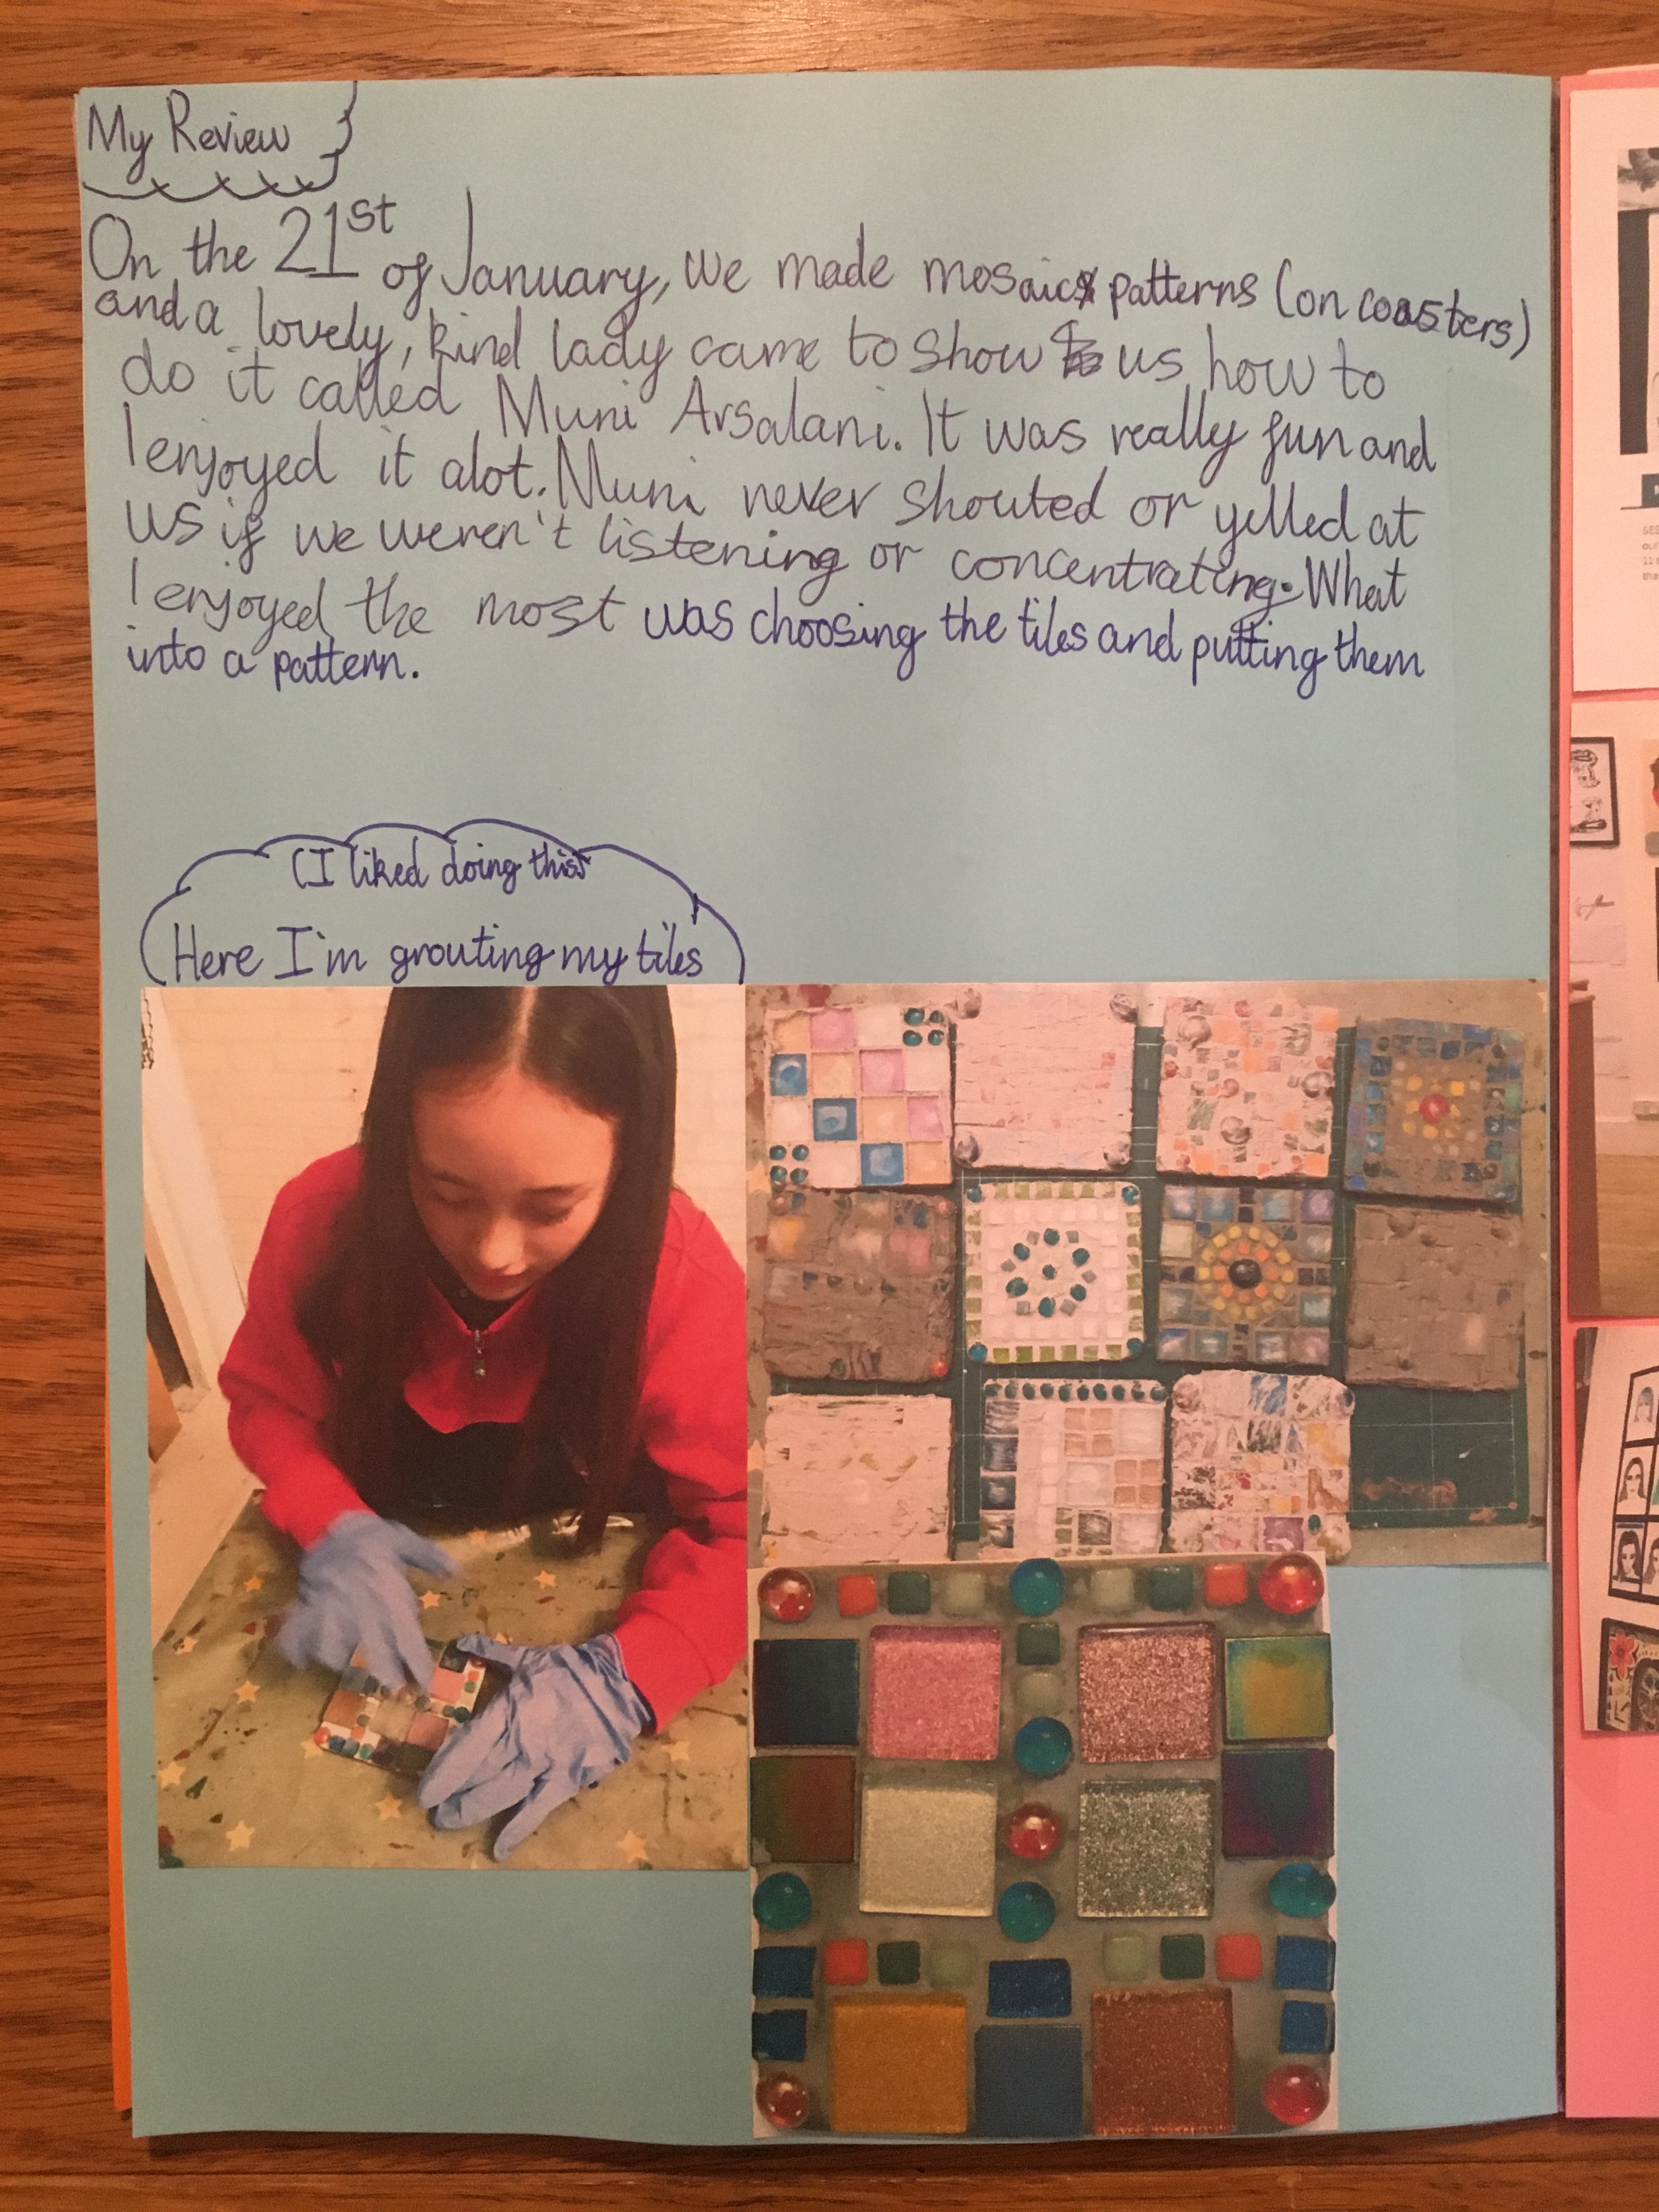 My Review
On the 21st of January, we made mosaic patterns (on coasters)
and a lovely, kind lady came to show us how to
do it called Muni Arsalani. It was really fun and
I enjoyed it alot. Muni never shouted or yelled at
us if we weren't listening or concentrating. What
I enjoyed the most was choosing the tiles and putting them
into a pattern.
(I liked doing this
Here I'm grouting my tiles